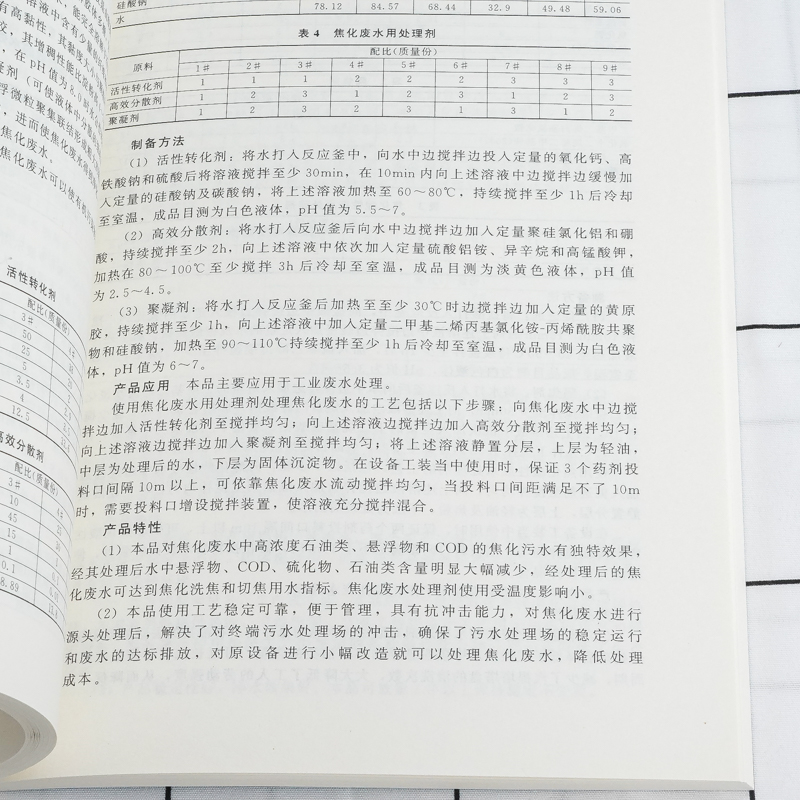 硅酸钠 78.12 84.57 68.44 32.9 49.48 59.06
水
表 4 焦化废水用处理剂
原料 配比(质量份)
1# 2# 3# 4# 5# 6# 7# 8# 9#
活性转化剂 1 1 1 2 2 2 3 3 3
高效分散剂 1 2 3 1 2 3 1 2 3
聚凝剂 1 2 3 2 3 1 3 1 2
制备方法
(1) 活性转化剂：将水打入反应釜中，向水中边搅拌边投入定量的氧化钙、高
铁酸钠和硫酸后将溶液搅拌至少 30min，在 10min 内向上述溶液中边搅拌边缓慢加
入定量的硅酸钠及碳酸钠，将上述溶液加热至 60～80℃，持续搅拌至少 1h 后冷却
至室温，成品目测为白色液体，pH 值为 5.5～7。
(2) 高效分散剂：将水打入反应釜后向水中边搅拌边加入定量聚硅氯化铝和硼
酸，持续搅拌至少 2h，向上述溶液中依次加入定量硫酸铝铵、异辛烷和高锰酸钾，
加热在 80～100℃至少搅拌 3h 后冷却至室温，成品目测为淡黄色液体，pH 值
为 2.5～4.5。
(3) 聚凝剂：将水打入反应釜后加热至至少 30℃时边搅拌边加入定量的黄原
胶，持续搅拌至少 1h，向上述溶液中加入定量二甲基二烯丙基氯化铵-丙烯酰胺共聚
物和硅酸钠，加热至 90～110℃持续搅拌至少 1h 后冷却至室温，成品目测为白色液
体，pH 值为 6～7。
产品应用 本品主要应用于工业废水处理。
使用焦化废水用处理剂处理焦化废水的工艺包括以下步骤：向焦化废水中边搅
拌边加入活性转化剂至搅拌均匀；向上述溶液边搅拌边加入高效分散剂至搅拌均匀；
向上述溶液边搅拌边加入聚凝剂至搅拌均匀；将上述溶液静置分层，上层为轻油，
中层为处理后的水，下层为固体沉淀物。在设备工装当中使用时，保证 3 个药剂投
料口间隔 10m 以上，可依靠焦化废水流动搅拌均匀，当投料口间距满足不了 10m
时，需要投料口增设搅拌装置，使溶液充分搅拌混合。
产品特性
(1) 本品对焦化废水中高浓度石油类、悬浮物和 COD 的焦化污水有独特效果，
经其处理后水中悬浮物、COD、硫化物、石油类含量明显大幅减少，经处理后的焦
化废水可达到焦化洗焦和切焦用水指标。焦化废水处理剂使用受温度影响小。
(2) 本品使用工艺稳定可靠，便于管理，具有抗冲击能力，对焦化废水进行
源头处理后，解决了对终端污水处理场的冲击，确保了污水处理场的稳定运行
和废水的达标排放，对原设备进行小幅改造就可以处理焦化废水，降低处理
成本。
活性转化剂
配比(质量份)
3# 4#
50
25
5
3.5
4
12.5
高效分散剂
配比(质量份)
3# 4#
10
45
15
1
0.1
8.89